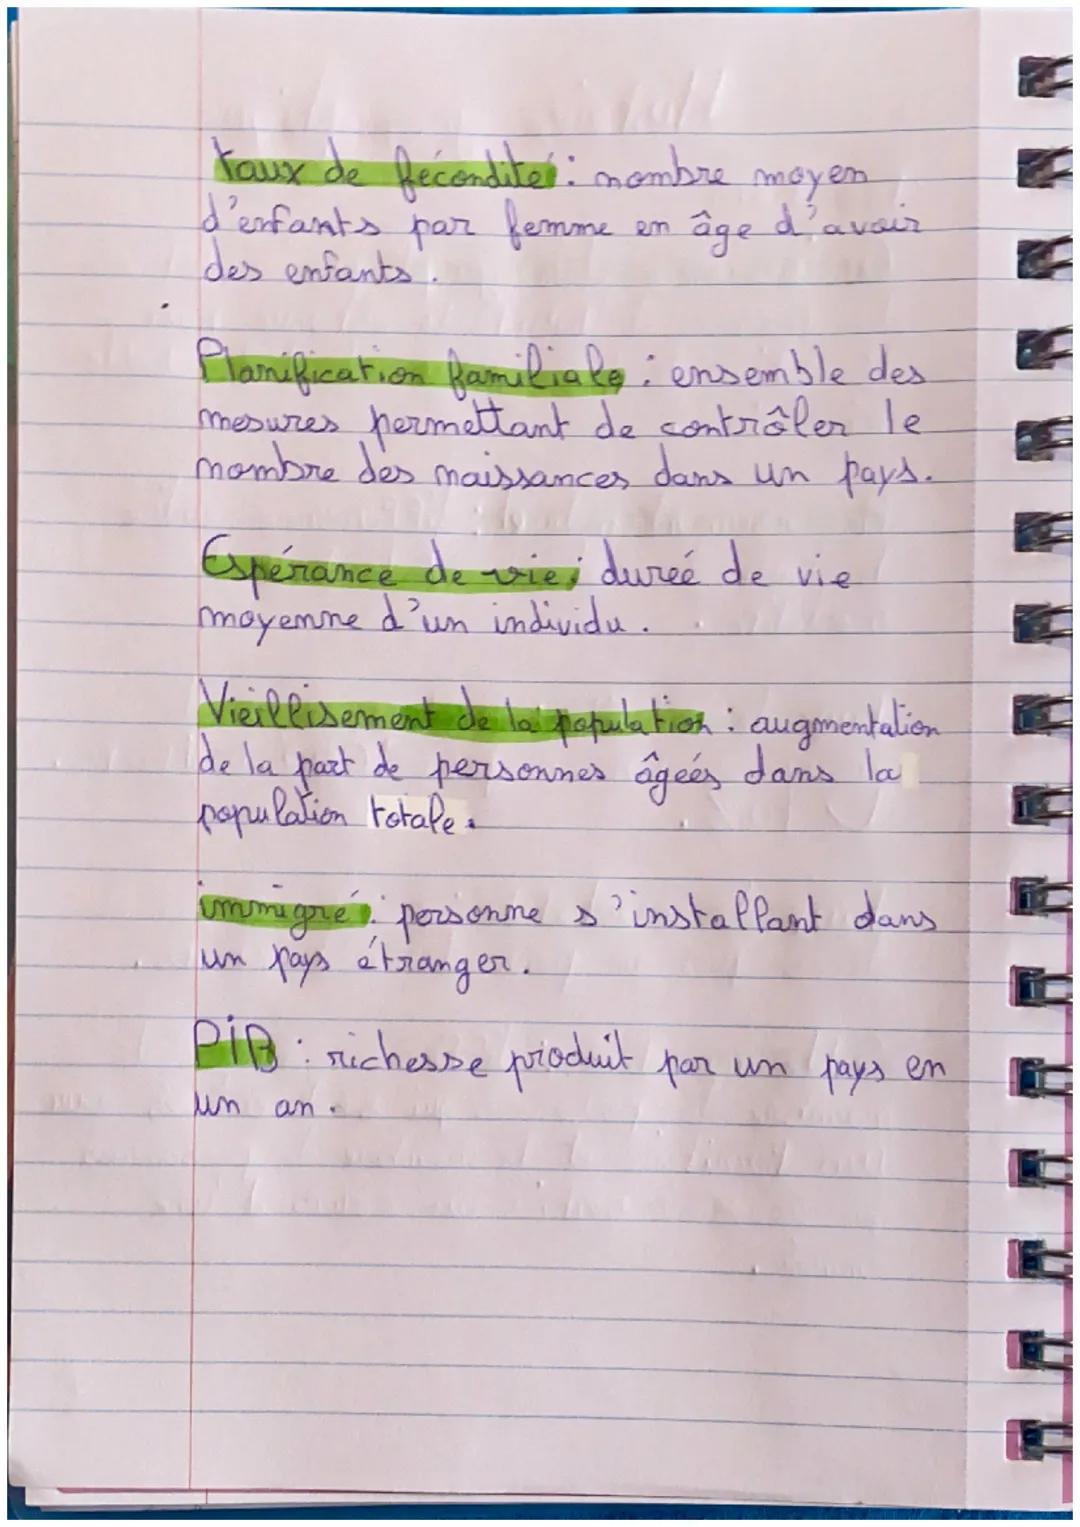 taux de fécondité : nombre moyen
d'enfants par femme en âge d'avoir
des enfants.
Planification familiale : ensemble des
mesures permettant de contrôler le
nombre des naissances dans un pays.
Espérance de vie : dureé de vie
moyenne d'un individu.
Vieillisement de la population : augmentation
de la part de personnes âgeés dans la
population totale.
immigré : personne s'installant dans
un pays étranger.
PiB : richesse produit par un pays en
un an.